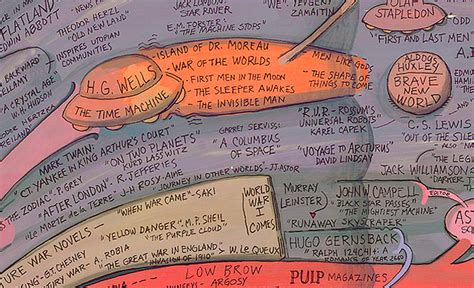 FLATLAND
EDWIN ABBOTT
THEODOR HERZL
"OLD NEW LAND"
INSPIRES UTOPIAN
COMMUNITIES
JACK LONDON:
STAR ROVER
E.M. FORSTER:
"THE MACHINE STOPS"
"WE". YEVGENY
ZAMAITIN
OLAF
STAPLEDON
"FIRST AND LAST MEN"
BACKWARD
BELLAMY
"A CRYSTAL AGE"
W.H. HUDSON
H.G. WELLS
THE TIME MACHINE
ISLAND OF DR. MOREAU
WAR OF THE WORLDS
FIRST MEN IN THE MOON
THE SLEEPER AWAKES
THE INVISIBLE MAN
MEN LIKE GODS
THE SHAPE OF
THINGS TO COME
ALDOUS
HUXLEY
BRAVE
NEW
WORLD
MARK TWAIN:
CT. YANKEE IN KING ARTHUR'S COURT
THE ZODIAC" P. GREY
"AFTER LONDON" R. JEFFERIES
ON TWO PLANETS
KURD LASSWITZ
J-H ROSNY-AINE
"JOURNEY IN OTHER WORLDS" JJ ASTOR
GARRET SERVISS:
"A COLUMBUS
OF SPACE"
"R.U.R - ROSSUM'S
UNIVERSAL ROBOTS"
KAREL CAPEK
"VOYAGE TO ARCTURUS"
DAVID LINDSAY
C.S. LEWIS
"OUT OF THE SILENT
THE LEG
JACK WILLIAMSON
"WHEN WAR CAME" - SAKI
"YELLOW DANGER" M.P. SHEIL
"THE PURPLE CLOUD"
WORLD
WAR
I
COMES
MURRAY
LEINSTER
"RUNAWAY SKYSCRAPER"
JOHN W. CAMPBELL
"BLACK STAR PASSES"
"THE MIGHTIEST MACHINE"
EDITOR
FUTURE WAR NOVELS -
DORKING - G.T. CHESNEY
A. ROBIA
"THE GREAT WAR IN ENGLAND"
"INVASION OF 1910"
W. LE QUEUX
HUGO GERNSBACK
RALPH 124C41+
ROMANCE OF YEAR 2660
LOW BROW
ARGOSY
PULP MAGAZINES